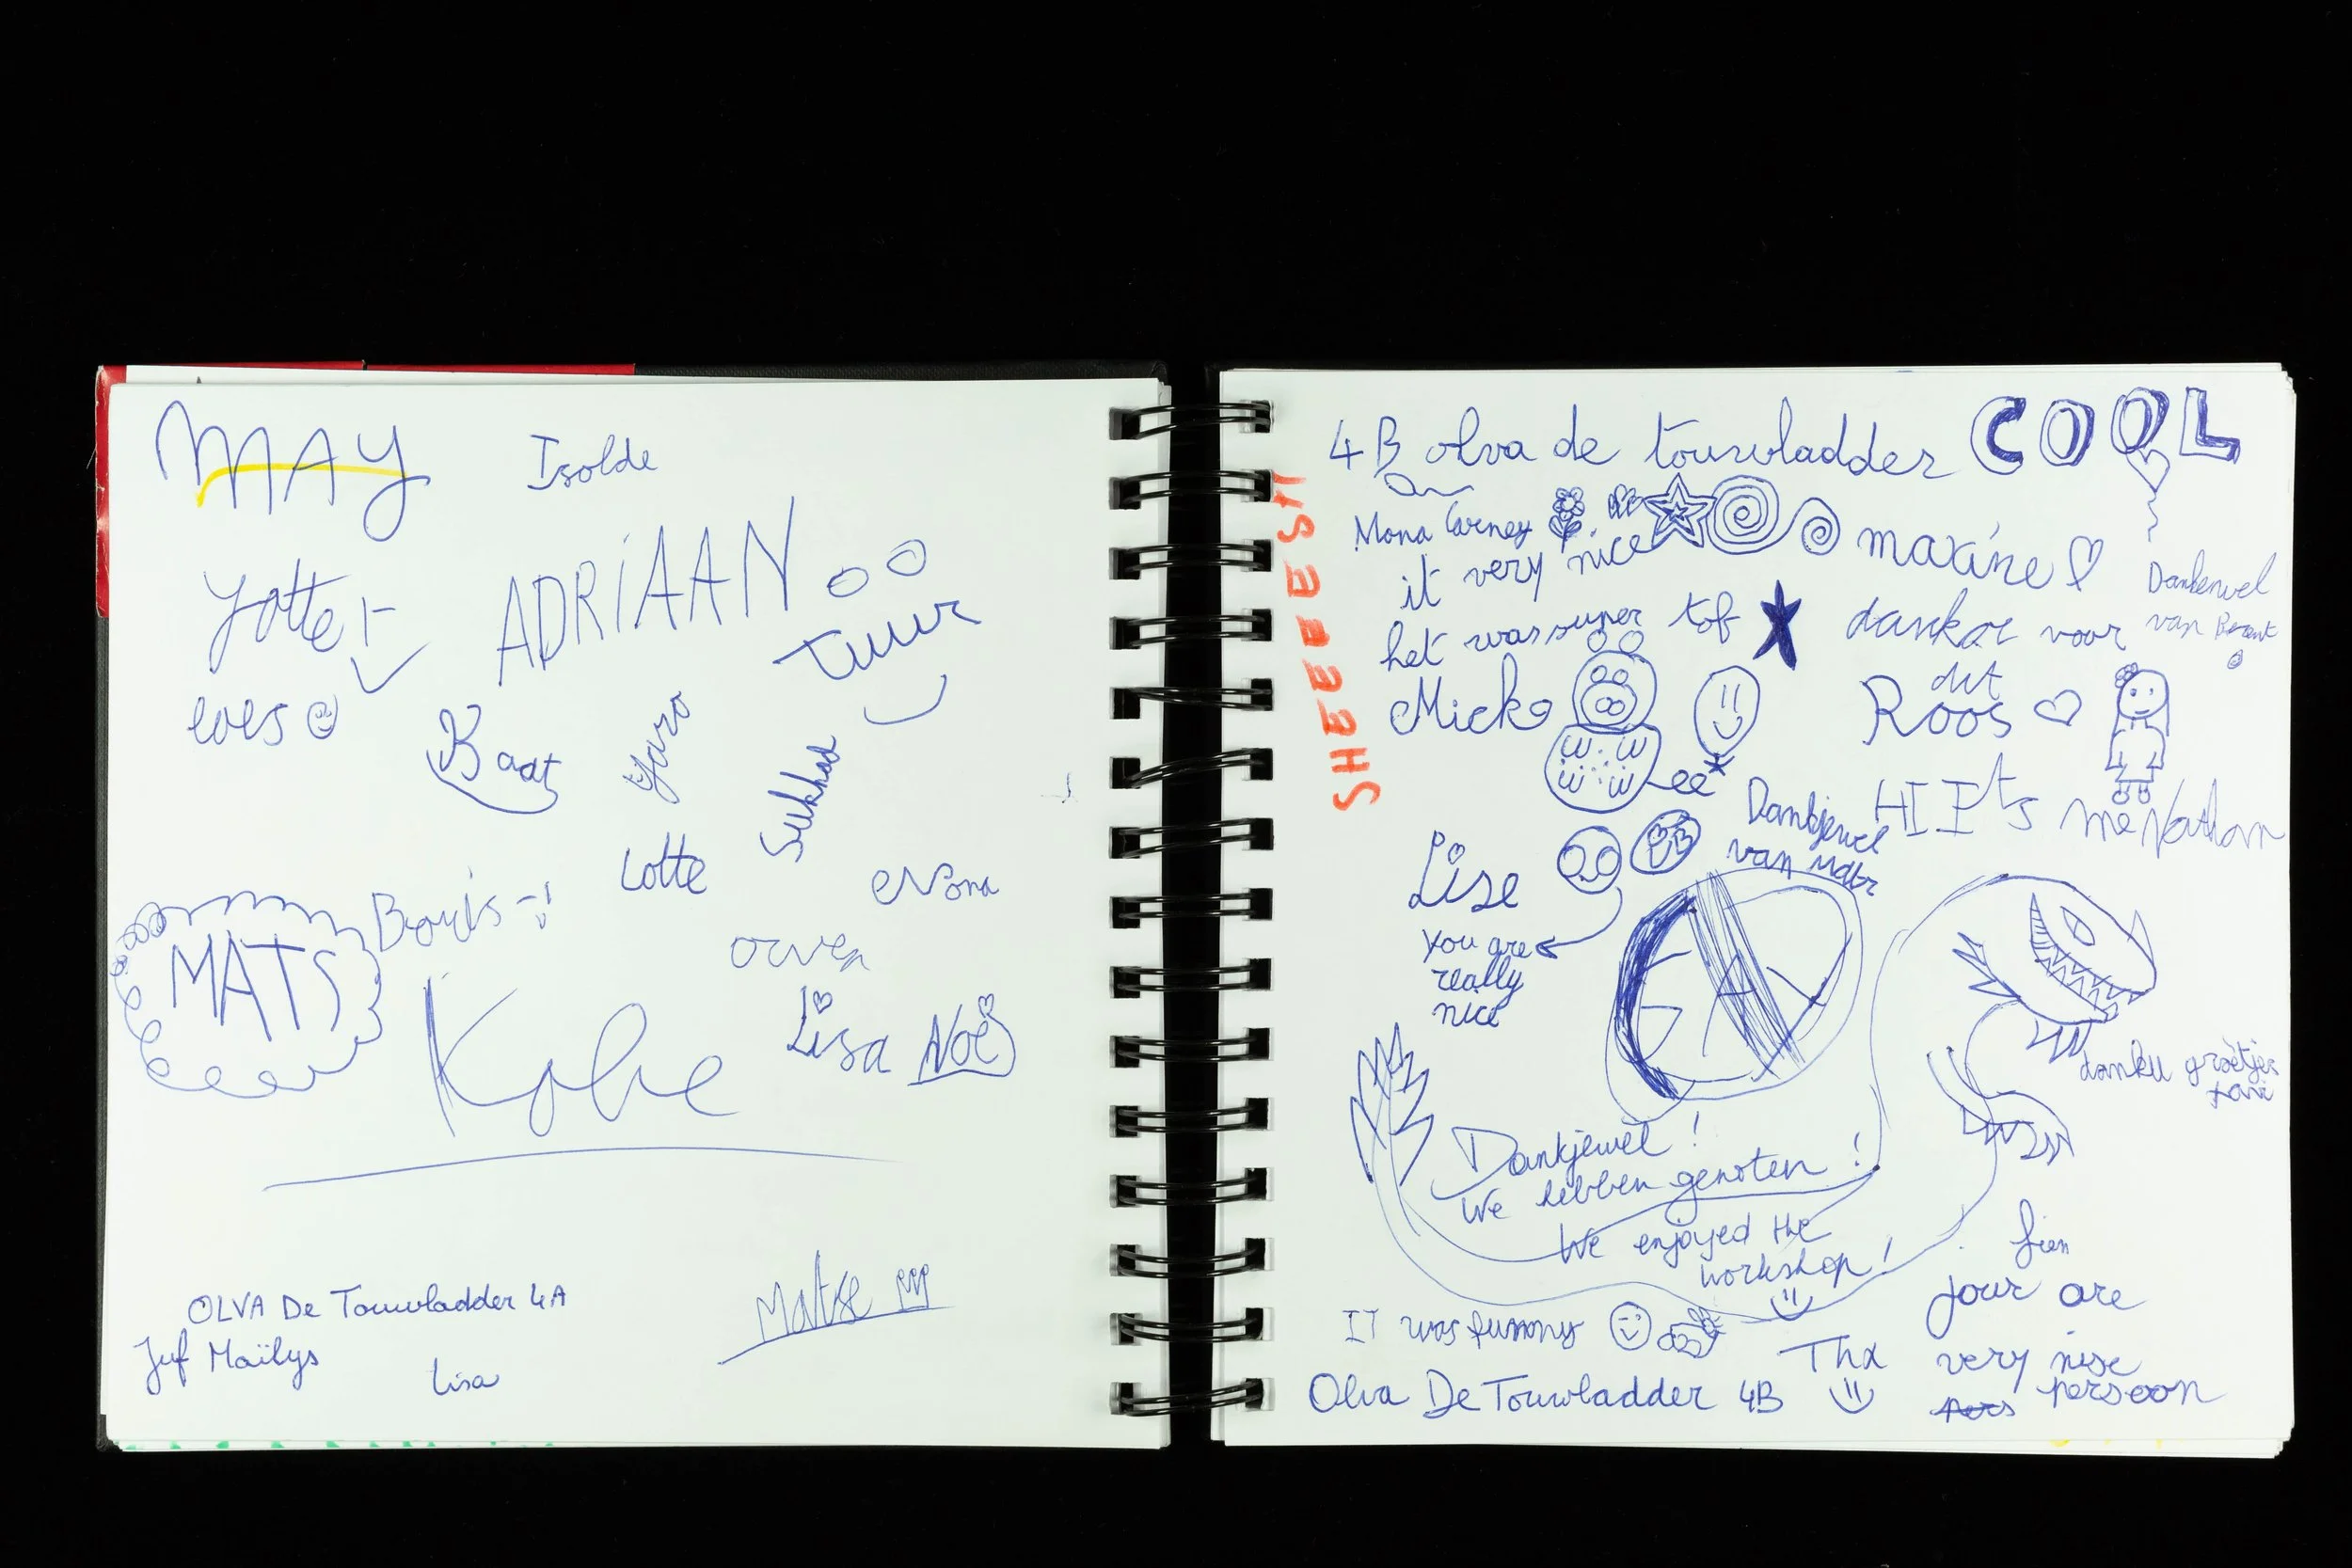 MAY
Isolde
Yotte
ADRiAAN
Tuur
loes
Kaat
Yaro
Sukhad
Lotte
Boris
MATS
Kobe
Lisa Noë
OLVA De Touwladder 4A
Juf Maïlys
Lisa
4B olva de touwladder COOL
SHEEEESH
Mona
it very nice
maxine
het was super tof
voor
dit
Dankjewel
van
Mick
Roos
HI It's me Nathan
Dankjewel
van
Lise
You are
really
nice
danku groetjes
Dankjewel!
We hebben genoten!
We enjoyed the
workshop!
fien
jour are
very nise
persoon
IT was funny
Thx
Olva De Touwladder 4B